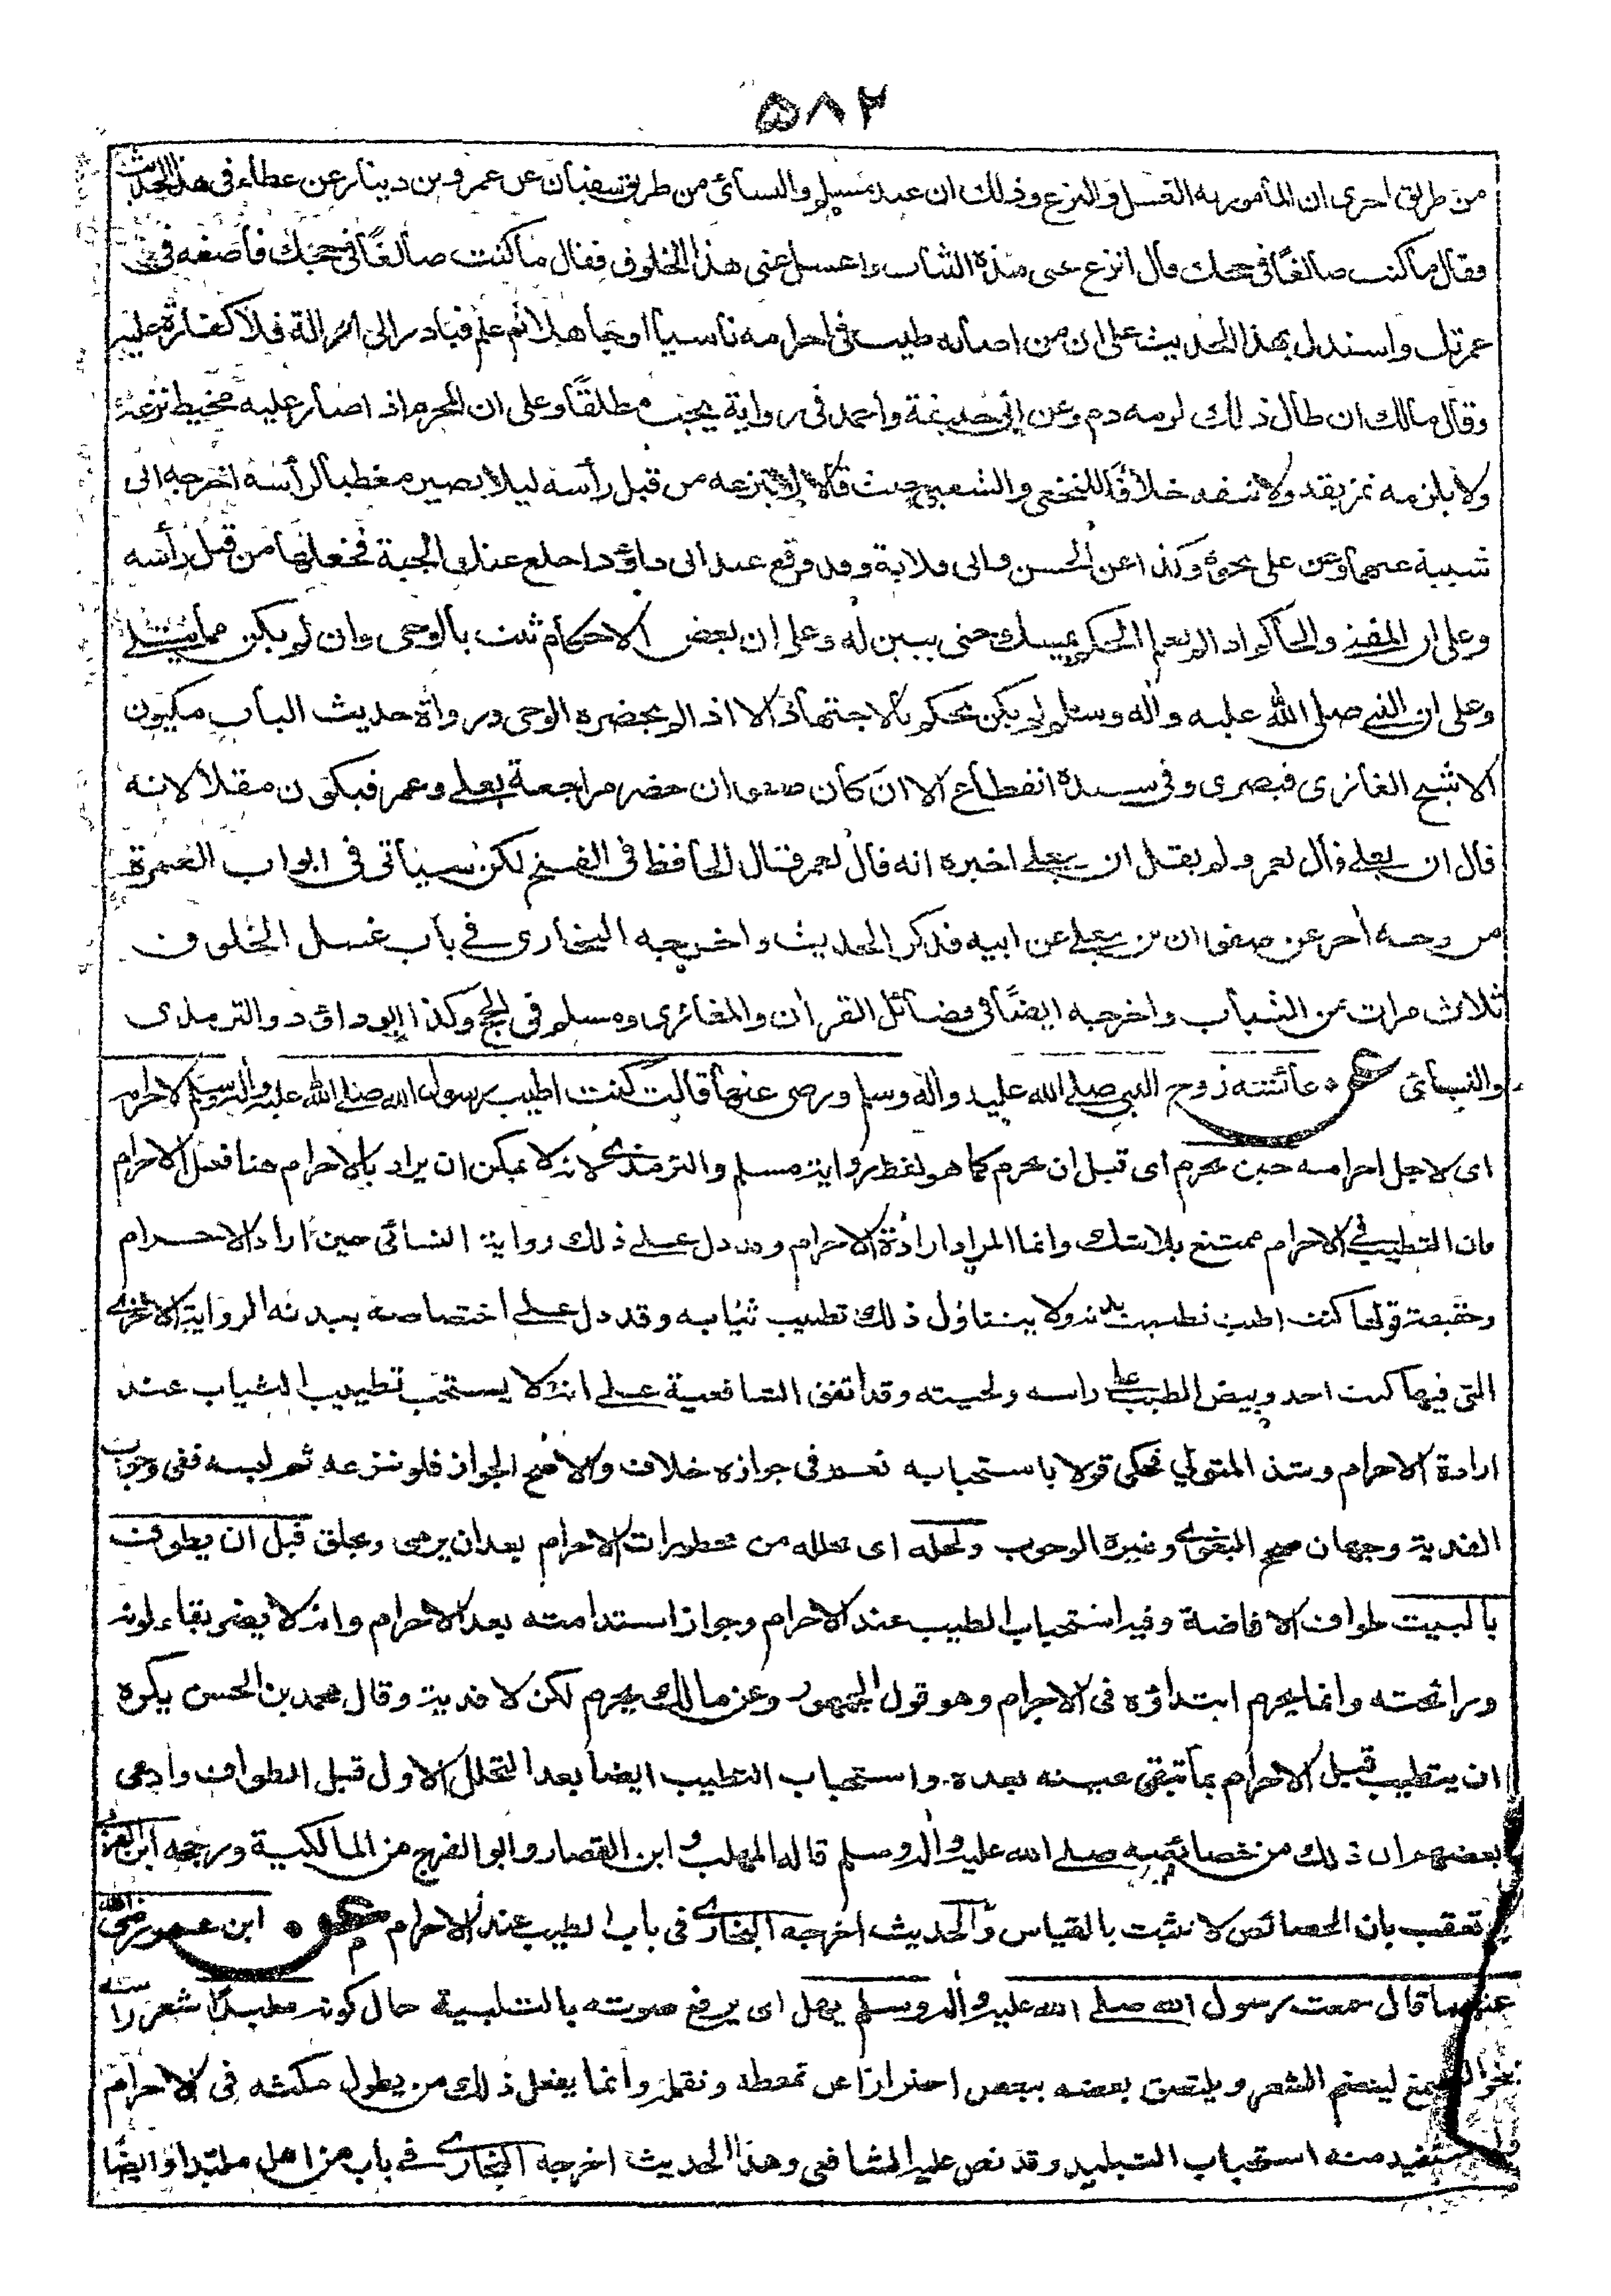 ٥٨٢
من طريق اخرى ان المأمور به الغسل والنزع وذلك ان عند مسلم والنسائى من طريق سفيان عن عمرو بن دينار عن عطاء فى هذا الحديث
فقال ما كنت صانعًا فى حجك قال انزع عنى هذه الثياب واغسل عنى هذا الخلوق فقال ما كنت صانعًا فى حجك فأصنعه فى
عمرتك واستدل بهذا الحديث على ان من اصابه طيب فى احرامه ناسيا او جاهلا ثم علم فبادر الى ازالة فلا كفارة عليه
وقال مالك ان طال ذلك لزمه دم وعن ابى حنيفة واحمد فى رواية يجب مطلقًا وعلى ان المحرم اذ اصار عليه مخيط نزعه
ولا يلزمه تمزيقه ولا شقه خلافًا للنخعى والشعبى حيث قالا لا ينزعه من قبل رأسه ليلا يصير مغطيا لرأسه اخرجه ابى
شيبة عنهما وعن على نحوه وكذا عن الحسن وابى قلابة وقد وقع عند ابى داؤد اخلع عنك الجبة فخعلها من قبل رأسه
وعلى ان المفتى والحاكم اذا لم يعلم الحكم يمسك حتى يبين له وعلى ان بعض الاحكام ثبت بالوحى وان لم يكن مما يتلى
وعلى ان النبى صلى الله عليه واله وسلم لم يكن يحكم بالاجتهاد الا اذا لم يحضره الوحى ورواة حديث الباب مكيون
الا شيخ الغازى فبصرى وفى سنده انقطاع الا ان كان صفوان حضر مراجعة يعلى وعمر فيكون متصلا لانه
قال ان يعلى قال لعمر ولم يقل ان يعلى اخبره انه قال لعمر قال الحافظ فى الفتح لكن سيأتى فى ابواب العمرة
من وجه اخر عن صفوان بن يعلى عن ابيه فذكر الحديث واخرجه البخارى فى باب غسل الخلوق
ثلاث مرات من الثياب واخرجه ايضًا فى فضائل القرآن والمغازى ومسلم فى الحج وكذا ابوداؤد والترمذى
والنسائى عن عائشة زوج النبى صلى الله عليه وآله وسلم ورضى عنها قالت كنت اطيب رسول الله صلى الله عليه واله وسلم لاحرامه
اى لاجل احرامه حين يحرم اى قبل ان يحرم كما هو لفظ رواية مسلم والترمذى لانه لا يمكن ان يراد بالاحرام هنا فعل الاحرام
فان التطيب فى الاحرام ممتنع بلا شك وانما المراد ارادة الاحرام وقد دل على ذلك رواية النسائى حين اراد الاحرام
وحقيقة قولها كنت اطيب تطييب بدنه ولا يتناول ذلك تطييب ثيابه وقد دل على اختصاصه ببدنه الرواية الاخرى
التى فيها كنت اجد وبيص الطيب على راسه ولحيته وقد اتفق الشافعية على انه لا يستحب تطييب الثياب عند
ارادة الاحرام وشذ المتولى فحكى قولا باستحبابه نعم فى جوازه خلاف والاصح الجواز فلو نزعه ثم لبسه ففى وجوب
الفدية وجهان صحح البغوى وغيره الوجوب ولحله اى تحلله من محظورات الاحرام بعد ان يرمى ويحلق قبل ان يطوف
بالبيت طواف الافاضة وفيه استحباب الطيب عند الاحرام وجواز استدامته بعد الاحرام وانه لا يضر بقاء لونه
ورائحته وانما يحرم ابتداؤه فى الاحرام وهو قول الجمهور وعن مالك يحرم لكن لا فدية وقال محمد بن الحسن يكره
ان يتطيب قبل الاحرام بما تبقى عينه بعده. واستحباب التطيب ايضا بعد التحلل الاول قبل الطواف وادعى
بعضهم ان ذلك من خصائصه صلى الله عليه واله وسلم قاله المهلب وابن القصار وابو الفرج من المالكية ورجحه ابن العربى
و تعقب بان الخصائص لا تثبت بالقياس والحديث اخرجه البخارى فى باب الطيب عند الاحرام عن ابن عمر رضى الله
عنهما قال سمعت رسول الله صلى الله عليه واله وسلم يهل اى يرفع صوته بالتلبية حال كونه ملبدًا شعر راسه
بنحو الصمغ لينضم الشعر ويلتصق بعضه ببعض احترازا عن تمعطه وتقمله وانما يفعل ذلك من يطول مكثه فى الاحرام
واستفيد منه استحباب التلبيد وقد نص عليه الشافعى وهذا الحديث اخرجه البخارى فى باب من اهل ملبدا وايضًا